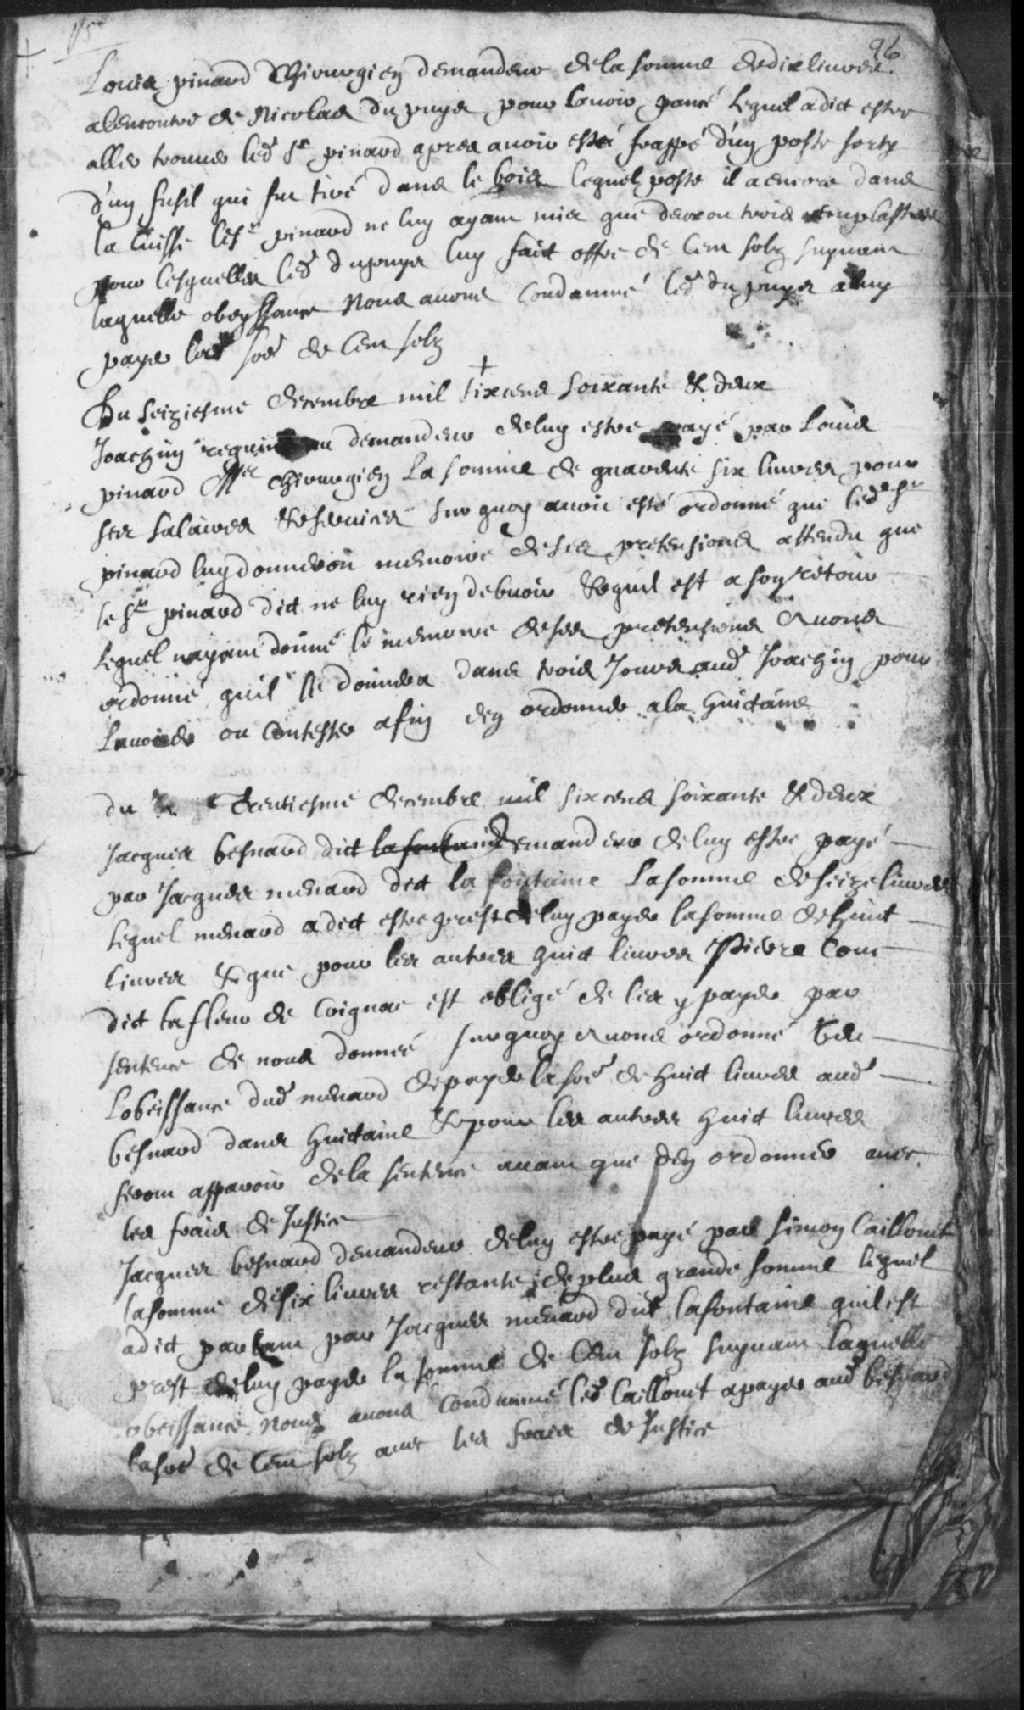 96
Louis pinard Chirurgien demandeur de la somme de dix livres
alencontre de Nicolas dupuys pour lavoir pansé lequel a dict estre
allé trouver led sr pinard apres avoir esté frappé d'un poste sorty
d'un fusil qui fut tiré dans le bois lequel poste il a encore dans
la cuisse led sr pinard ne luy ayant mis que deux ou trois emplastres
pour lesquelles led dupuys luy fait offre de cent solz suyvant
laquelle obeyssance Nous avons condamné led dupuys a luy
payer lad some de cent solz
Du seiziesme decembre mil sixcens soixante & deux
Joachin demandeur de luy estre payé par Louis
pinard Me chirurgien La somme de quarente six livres pour
ses salaires & services sur quoy avoir esté ordonné que led sr
pinard luy donneroit memoire de ses pretensions attendu que
le sr pinard dict ne luy rien debvoir & quil est a son retour
Lequel n'ayant donné le memoire de ses pretensions Avons
ordonné quil le donnera dans trois Jours aud Joachin pour
Lavouer ou contester afin den ordonner a la huictaine
du Trentiesme decembre mil sixcens soixante & deux
Jacques besnard dict demandeur de luy estre payé
par Jacques menard dict la fontaine La somme de seize livres
Lequel menard a dict estre prest de luy payer la somme de huict
Livres & que pour les autres huict livres Pierre
dict lafleur de Coignac est obligé de les y payer par
sentence de nous donnée sur quoy Avons ordonné de
Lobeissance dud menard de payer la some de huict livres aud
besnard dans huictaine & pour les autres huict livres
feront apparoir de la sentence avant que den ordonner avec
les frais de Justice
Jacques besnard demandeur de luy estre payé par Simon Caillouet
la somme de six livres restante de plus grande somme lequel
a dict par Jacques menard dict lafontaine quil est
prest de luy payer la somme de Cent solz suyvant laquelle
obeissance Nous avons condamné led Caillouet a payer aud besnard
la some de Cent solz avec les frais de Justice